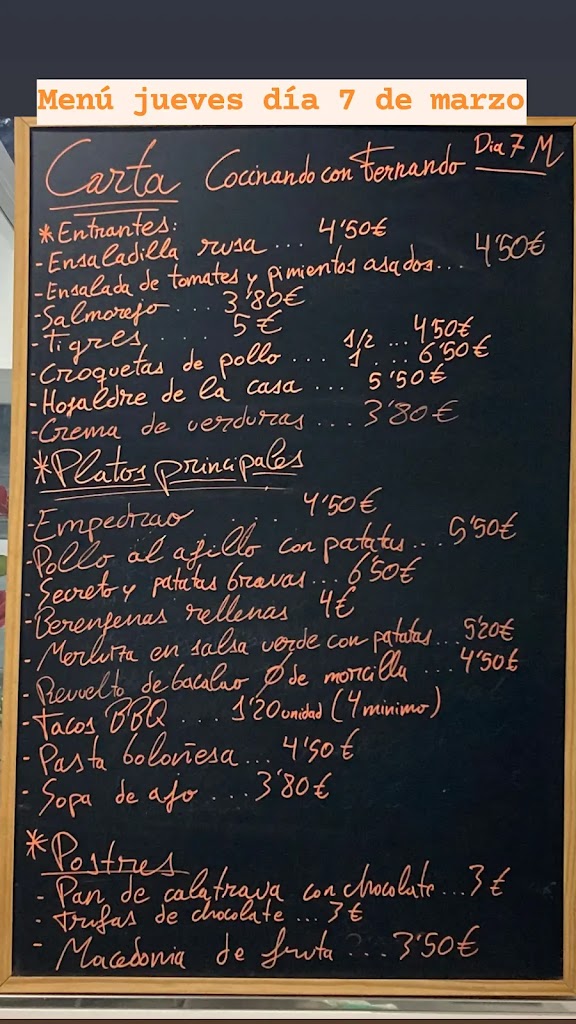 Menú jueves día 7 de marzo
Carta Cocinando con Fernando Dia 7 M
*Entrantes:
- Ensaladilla rusa ... 4'50€
- Ensalada de tomates y pimientos asados... 4'50€
- Salmorejo .... 3'80€
- Tigres ..... 5€
- Croquetas de pollo ... 1/2 ... 4'50€
1 ... 6'50€
- Hojaldre de la casa ... 5'50€
- Crema de verduras ... 3'80€
*Platos principales
- Empedrao ..... 4'50€
- Pollo al ajillo con patatas... 5'50€
- Secreto y patatas bravas... 6'50€
- Berenjenas rellenas 4€
- Merluza en salsa verde con patatas... 5'20€
- Revuelto de bacalao Ø de morcilla ... 4'50€
- Tacos BBQ ... 1'20 unidad (4 minimo)
- Pasta boloñesa ... 4'50€
- Sopa de ajo ... 3'80€
*Postres
- Pan de calatrava con chocolate ... 3€
- Trufas de chocolate ... 3€
- Macedonia de fruta ... 3'50€